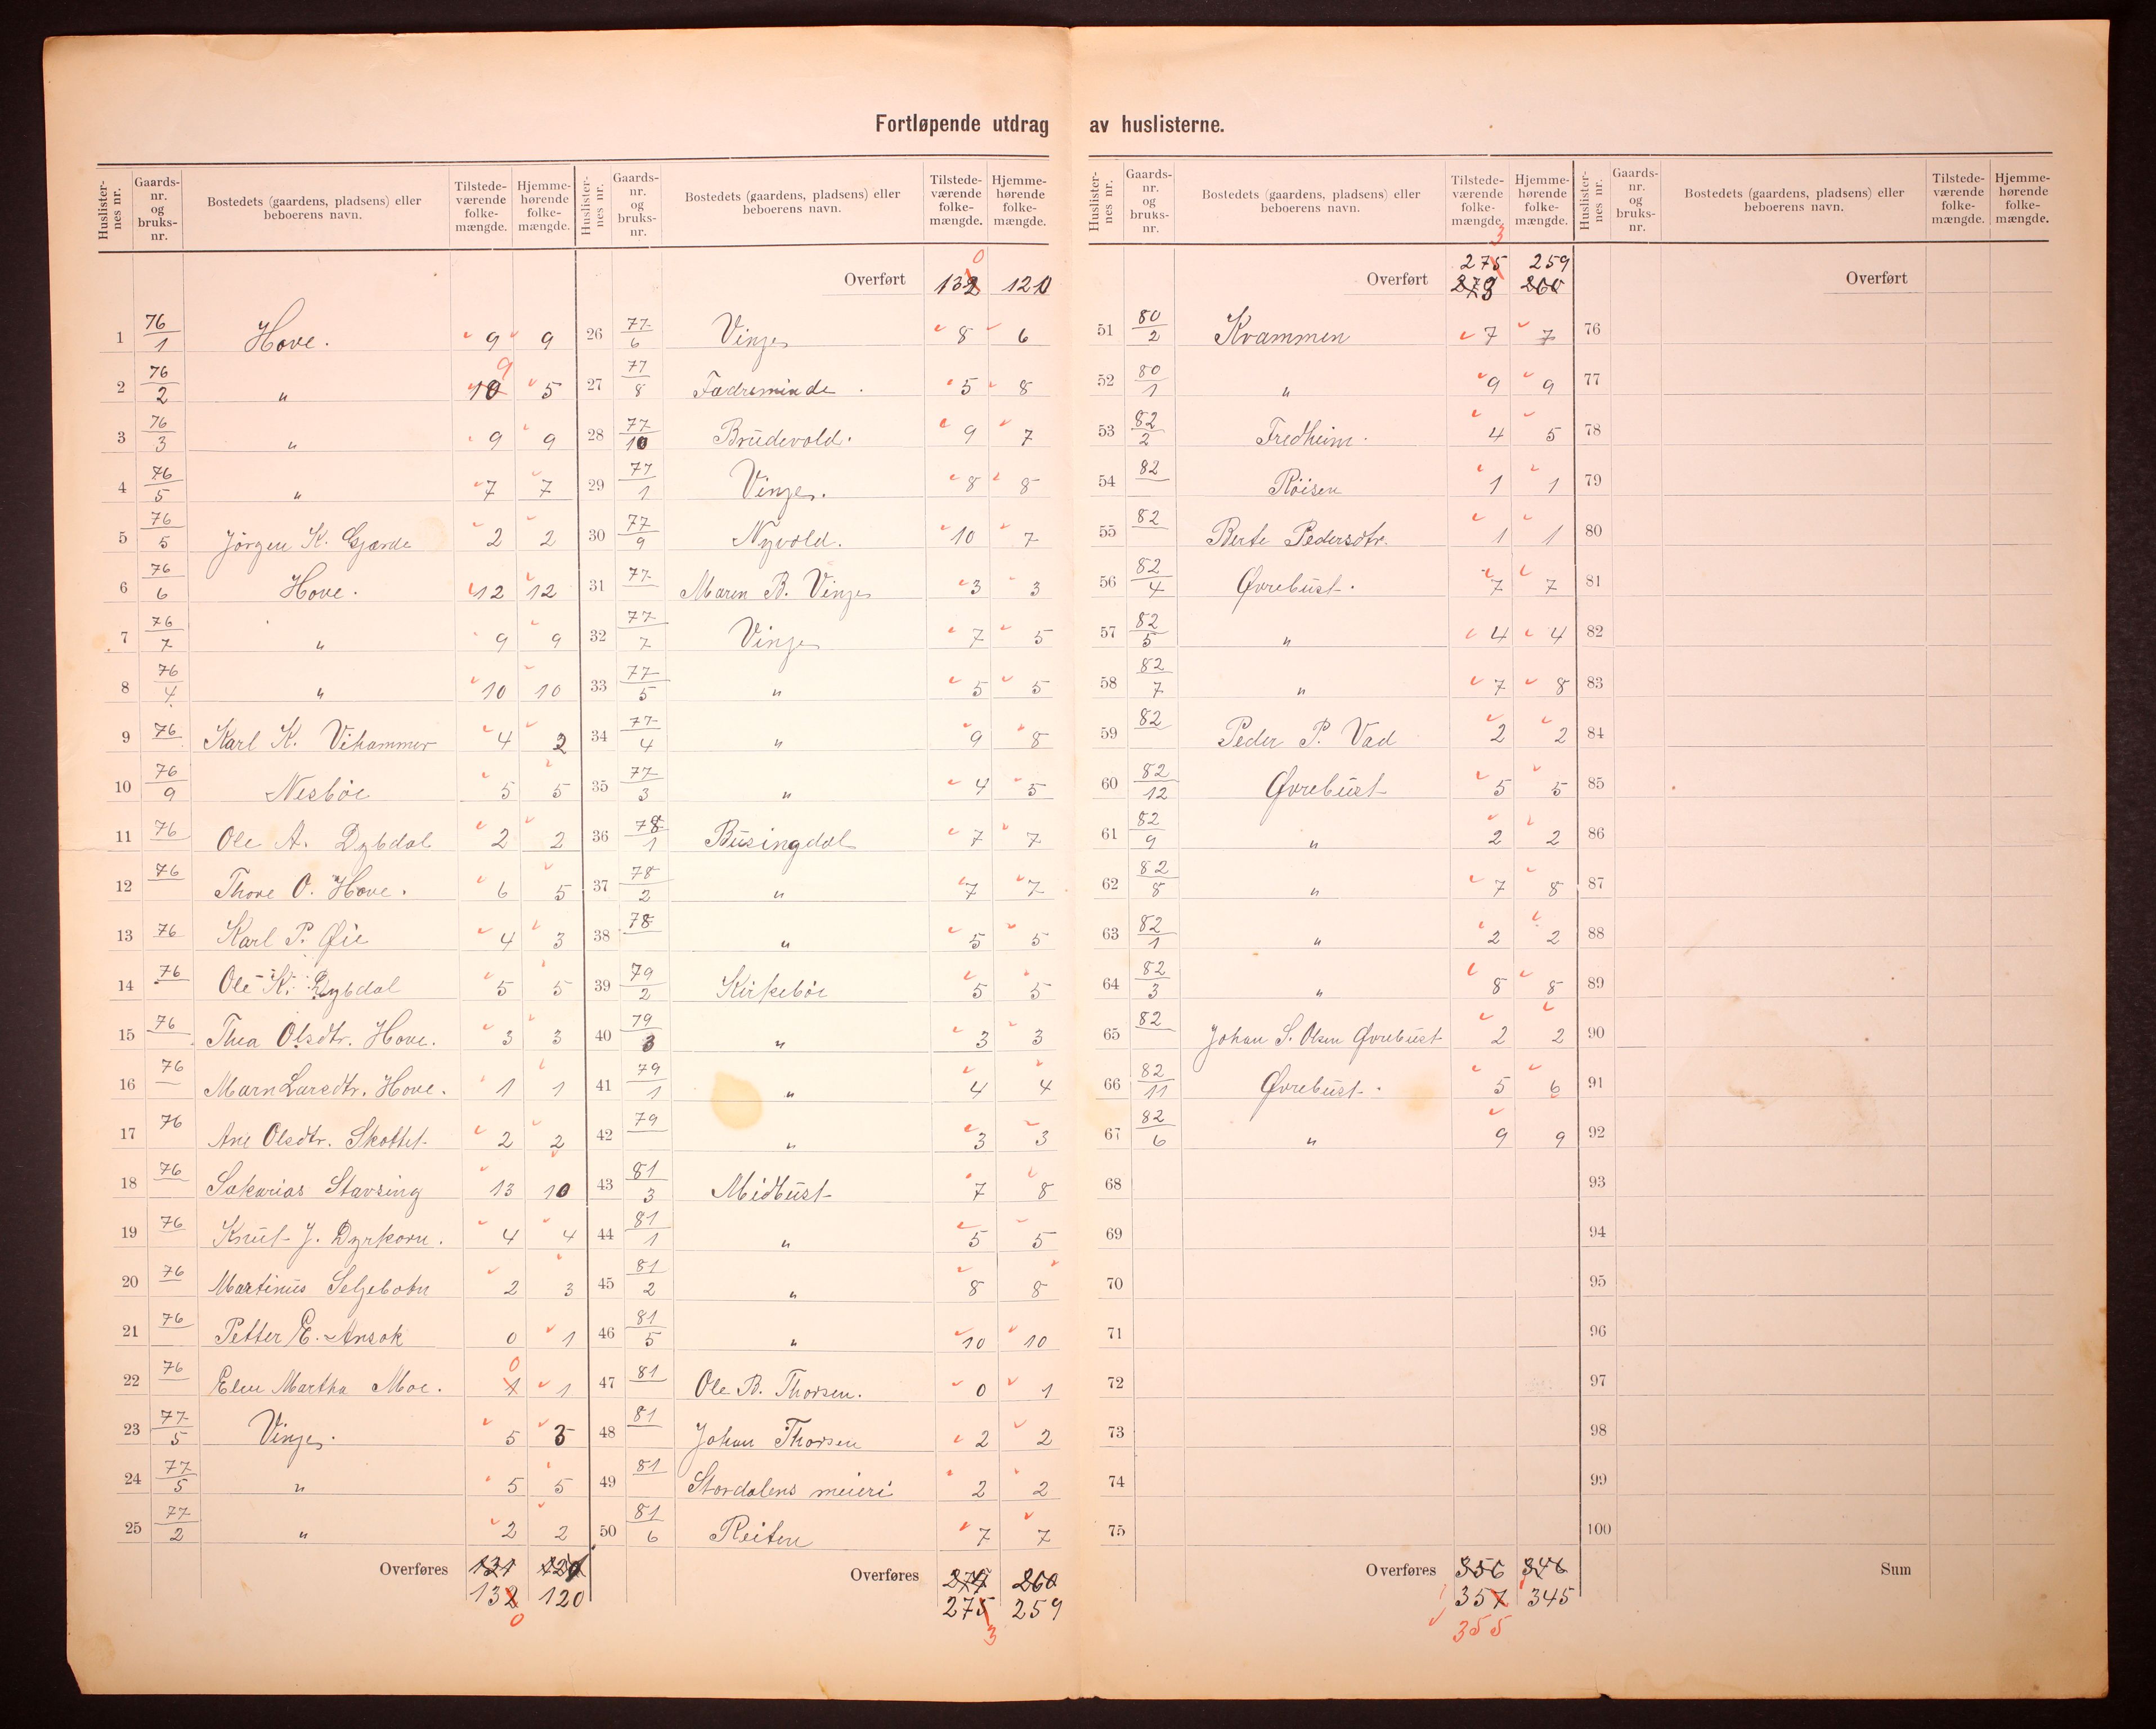 Fortløpende utdrag av huslisterne.
Huslister- nes nr. | Gaards- nr. og bruks- nr. | Bostedets (gaardens, pladsens) eller beboerens navn. | Tilstede- værende folke- mængde. | Hjemme- hørende folke- mængde.
1 76/1 Hove. 9 9
2 76/2 " 10 9 5
3 76/3 " 9 9
4 76/5 " 7 7
5 76/5 Jörgen K. Gjærde 2 2
6 76/6 Hove. 12 12
7 76/7 " 9 9
8 76/4 " 10 10
9 76 Karl K. Vikammer 4 2
10 76/9 Nesböe 5 5
11 76 Ole A. Dybdal 2 2
12 76 Thore O. Hove. 6 5
13 76 Karl P. Øie 4 3
14 76 Ole K. Dybdal 5 5
15 76 Thea Olsdtr. Hove. 3 3
16 76 Marn Larsdtr. Hove. 1 1
17 76 Ane Olsdtr. Skottet 2 2
18 76 Sakarias Stavseng 13 10
19 76 Knut J. Dyrkorn. 4 4
20 76 Martinus Seljebotn 2 3
21 76 Petter E. Ansok 0 1
22 76 Elen Martha Moe. 1 0 1
23 77/5 Vinje. 5 3
24 77/5 " 5 5
25 77/2 " 2 2
Overføres 131 121
132 120
0
Huslister- nes nr. | Gaards- nr. og bruks- nr. | Bostedets (gaardens, pladsens) eller beboerens navn. | Tilstede- værende folke- mængde. | Hjemme- hørende folke- mængde.
0
Overført 132 120
26 77/6 Vinje 8 6
27 77/8 Fædreminde. 5 8
28 77/10 Brudevold. 9 7
29 77/1 Vinje. 8 8
30 77/9 Nyvold. 10 7
31 77 Maren B. Vinje 3 3
32 77/7 Vinje 7 5
33 77/5 " 5 5
34 77/4 " 9 8
35 77/3 " 4 5
36 78/1 Busingdal 7 7
37 78/2 " 7 7
38 78 " 5 5
39 79/2 Kirkeböe 5 5
40 79/3 " 3 3
41 79/1 " 4 4
42 79 " 3 3
43 81/3 Midbust 7 8
44 81/1 " 5 5
45 81/2 " 8 8
46 81/5 " 10 10
47 81 Ole B. Thorsen. 0 1
48 81 Johan Thorsen 2 2
49 81 Stordalens meieri 2 2
50 81/6 Reiten 7 7
Overføres 274 260
275 259
3
Huslister- nes nr. | Gaards- nr. og bruks- nr. | Bostedets (gaardens, pladsens) eller beboerens navn. | Tilstede- værende folke- mængde. | Hjemme- hørende folke- mængde.
3
275 259
Overført 273 260
51 80/2 Kvammen 7 7
52 80/1 " 9 9
53 82/2 Fredheim. 4 5
54 82 Röisen 1 1
55 82 Berte Pedersdtr. 1 1
56 82/4 Øvrebust. 7 7
57 82/5 " 4 4
58 82/7 " 7 8
59 82 Peder P. Vad 2 2
60 82/12 Øvrebust 5 5
61 82/9 " 2 2
62 82/8 " 7 8
63 82/1 " 2 2
64 82/3 " 8 8
65 82 Johan S. Olsen Øvrebust 2 2
66 82/11 Øvrebust. 5 6
67 82/6 " 9 9
68
69
70
71
72
73
74
75
Overføres 356 346
357 345
355
Huslister- nes nr. | Gaards- nr. og bruks- nr. | Bostedets (gaardens, pladsens) eller beboerens navn. | Tilstede- værende folke- mængde. | Hjemme- hørende folke- mængde.
Overført
76
77
78
79
80
81
82
83
84
85
86
87
88
89
90
91
92
93
94
95
96
97
98
99
100
Sum